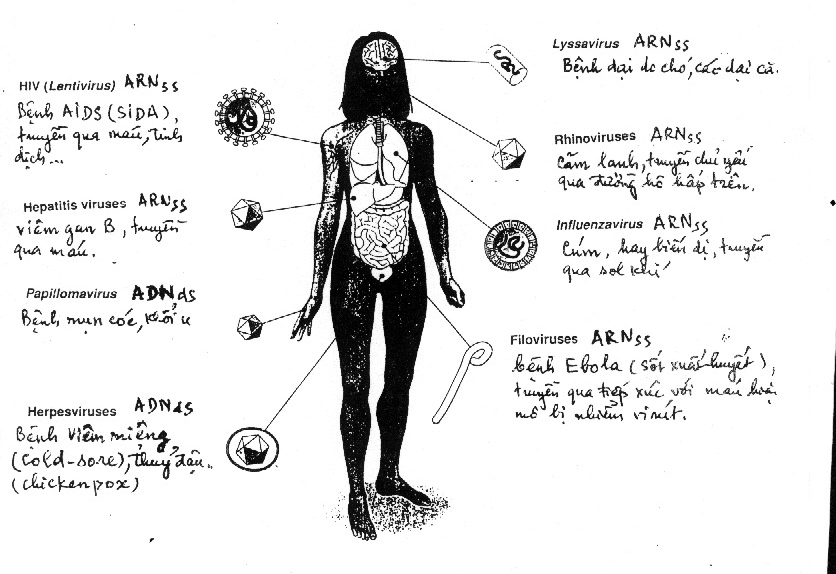 HIV (Lentivirus) ARNss
Bệnh AIDS (SIDA),
truyền qua máu, tinh
dịch...
Hepatitis viruses ARNss
viêm gan B, truyền
qua máu.
Papillomavirus ADNds
Bệnh mụn cóc, khối u
Herpesviruses ADNds
Bệnh viêm miệng
(cold-sore), thuỷ đậu..
(chickenpox)
Lyssavirus ARNss
Bệnh dại do chó, các dại cắ.
Rhinoviruses ARNss
cảm lạnh, truyền chủ yếu
qua đường hô hấp trên.
Influenzavirus ARNss
Cúm, hay biến dị, truyền
qua sol khí
Filoviruses ARNss
bệnh Ebola (sốt xuất huyết),
truyền qua tiếp xúc với máu hoặc
mô bị nhiễm virút.